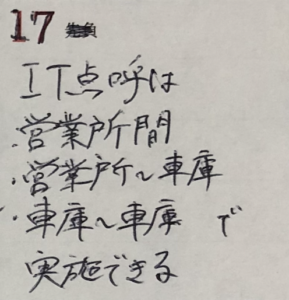 17
IT点呼は
・営業所間
・営業所～車庫
・車庫～車庫 で
実施できる